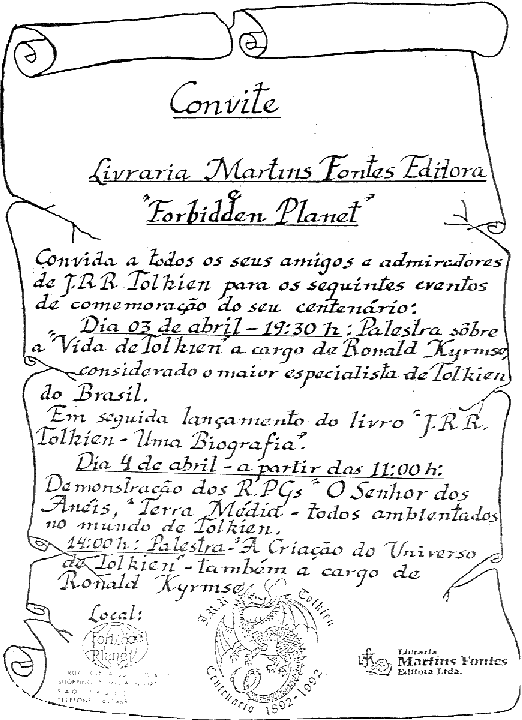 Convite
Livraria Martins Fontes Editora
e
"Forbidden Planet"
Convida a todos os seus amigos e admiradores
de J.R.R. Tolkien para os seguintes eventos
de comemoração do seu centenário:
Dia 03 de abril - 19:30 h: Palestra sôbre
a "Vida de Tolkien" a cargo de Ronald Kyrmse,
considerado o maior especialista de Tolkien
do Brasil.
Em seguida lançamento do livro "J.R.R.
Tolkien - Uma Biografia".
Dia 4 de abril - a partir das 11:00 h:
Demonstração dos R.P.Gs "O Senhor dos
Anéis, "Terra Média - todos ambientados
no mundo de Tolkien.
14:00 h: Palestra - "A Criação do Universo
de Tolkien" - também a cargo de
Ronald Kyrmse.
Local:
Forbidden
Planet
J.R.R. Tolkien
Centenário 1892-1992
Livraria
Martins Fontes
Editora Ltda.